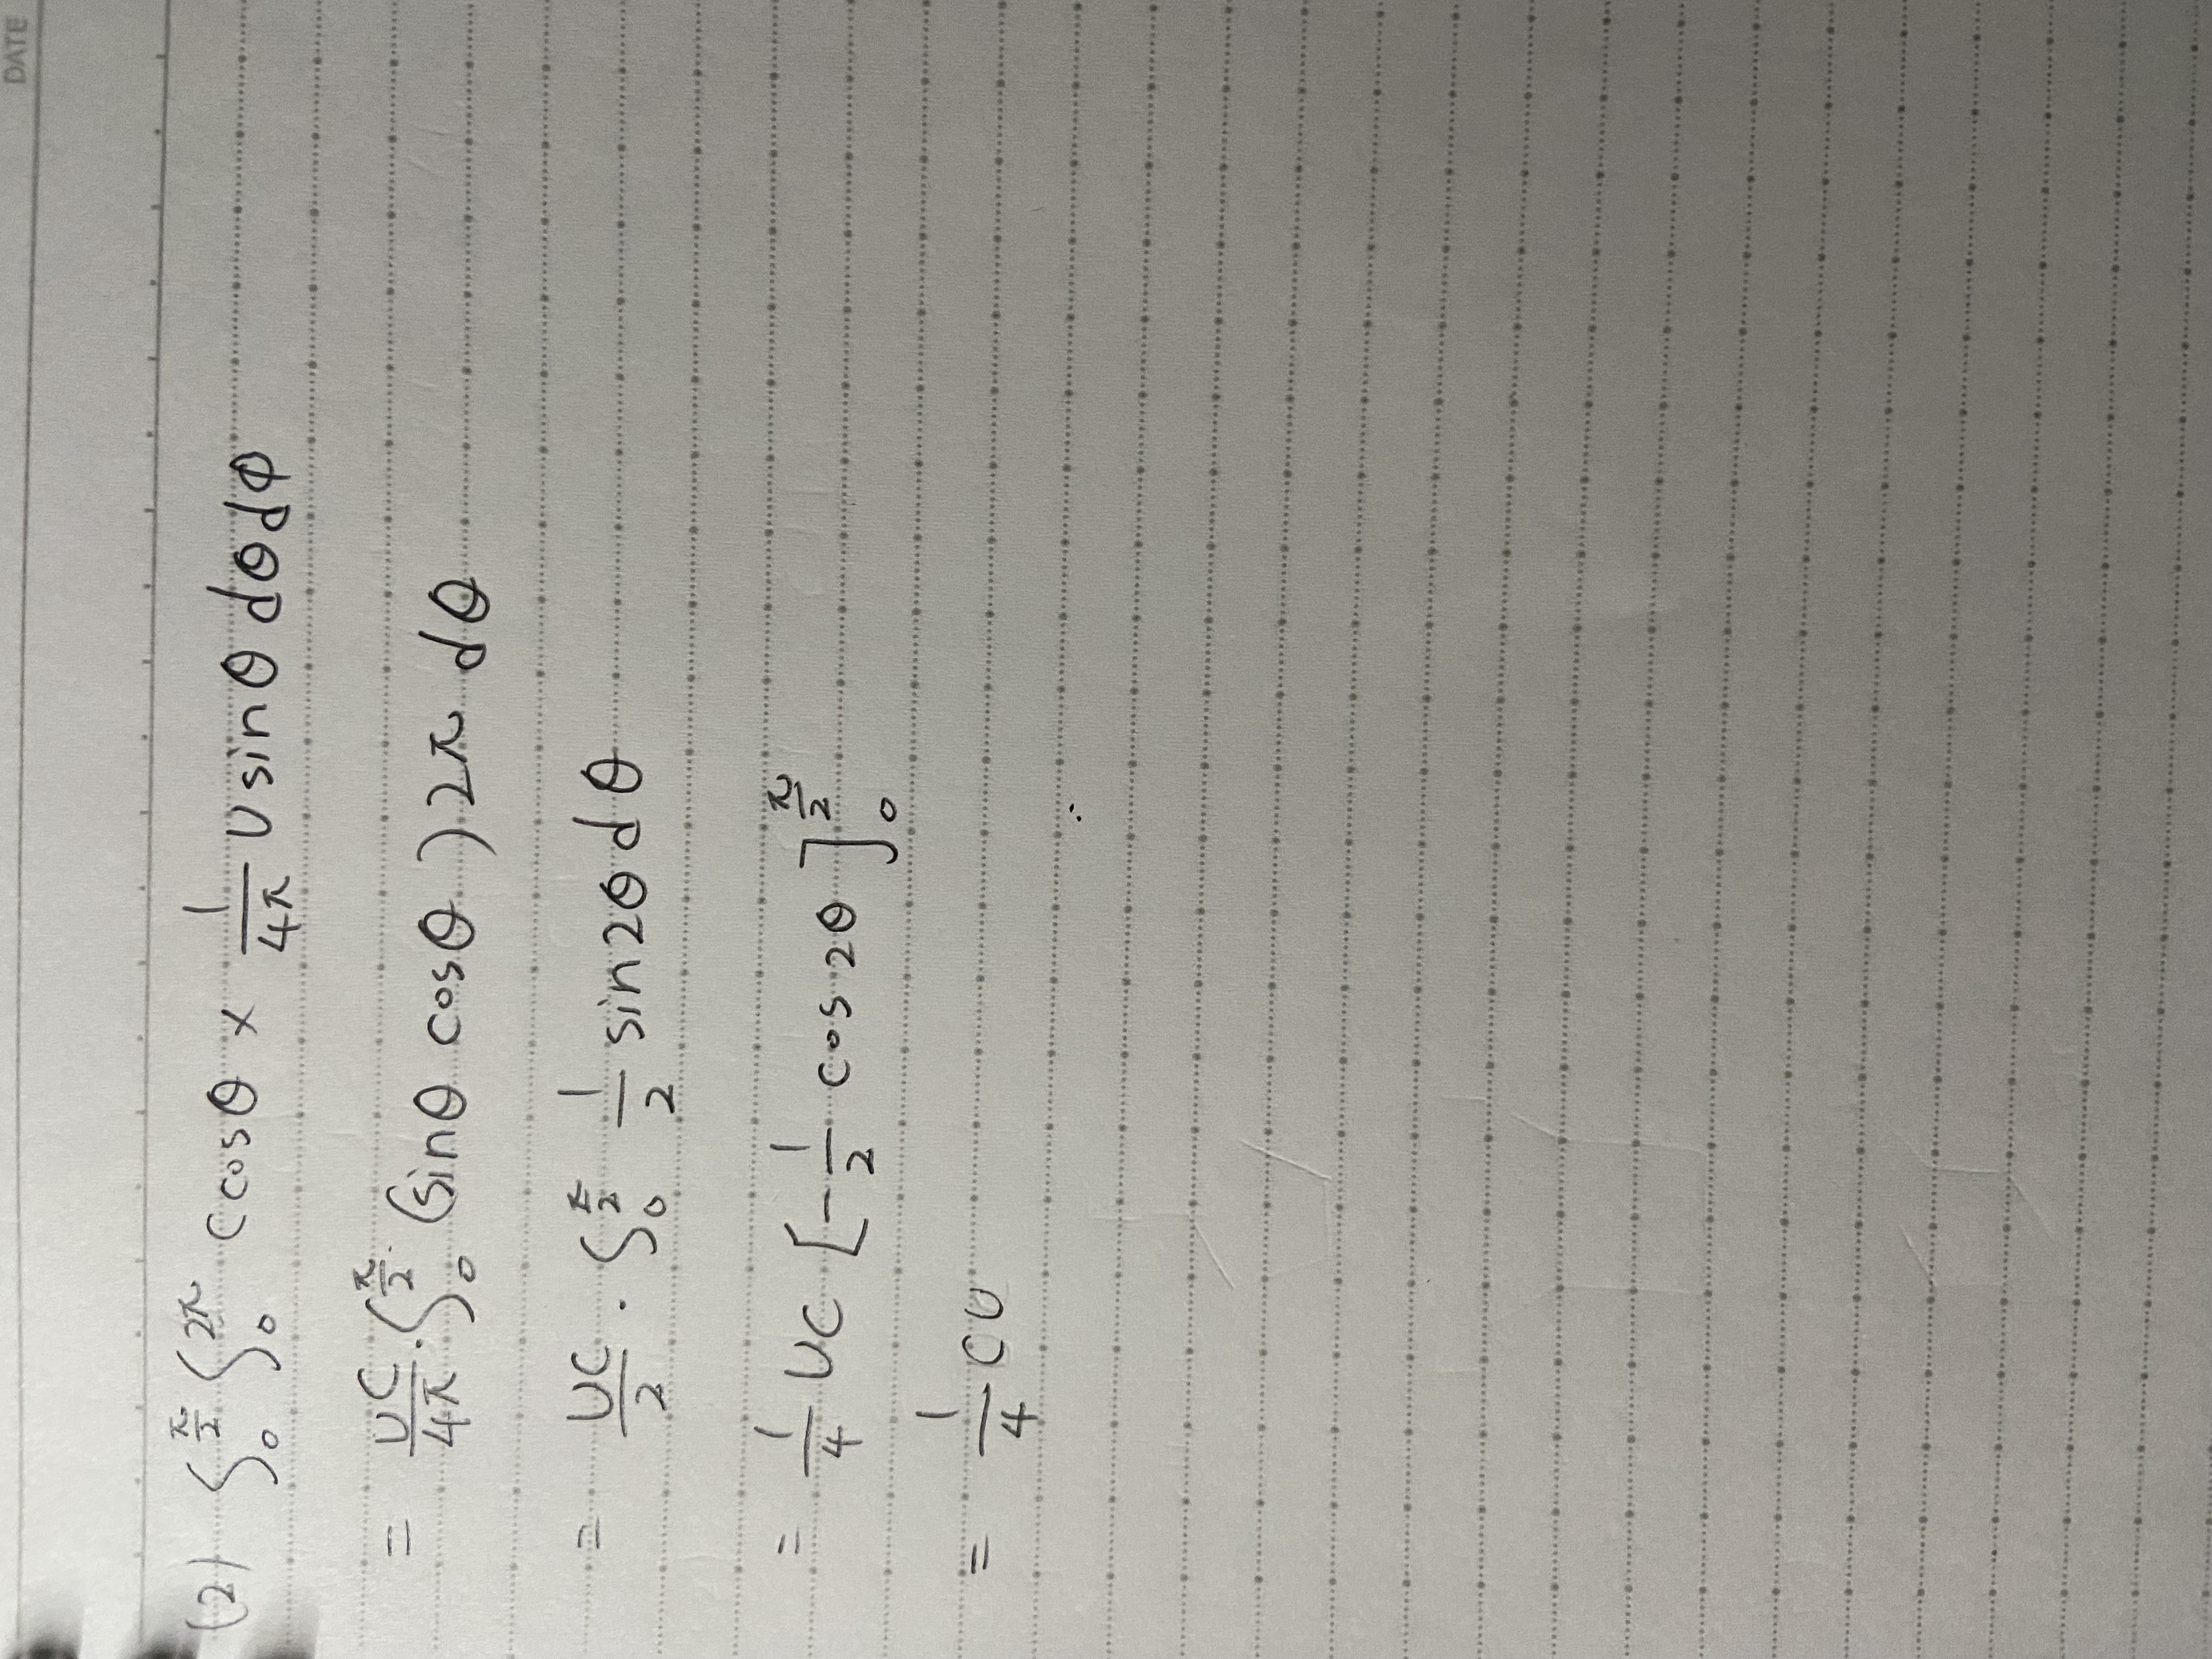 DATE
(2) ∫₀^{π/2} ∫₀^{2π} C cosθ × 1/4π U sinθ dθ dφ
= UC/4π · ∫₀^{π/2} (sinθ cosθ) 2π dθ
= UC/2 · ∫₀^{π/2} 1/2 sin2θ dθ
= 1/4 UC [-1/2 cos 2θ]₀^{π/2}
= 1/4 CU